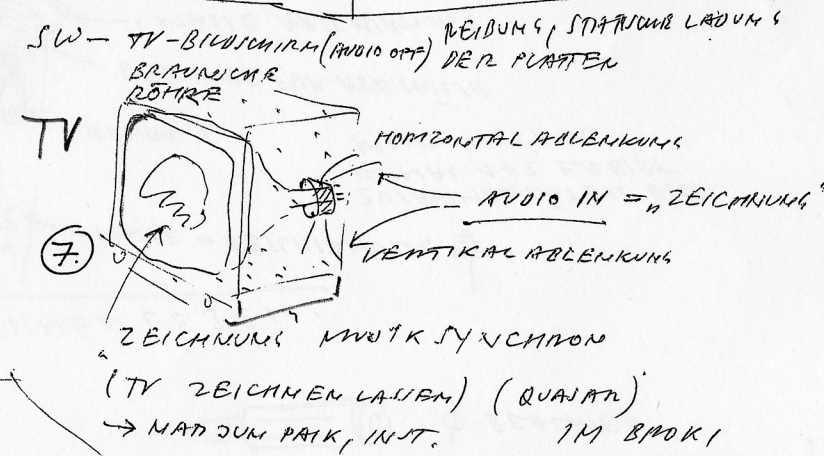 SW — TV-BILDSCHIRM (AUDIO OFF) REIBUNG, STATISCHE LADUNG
BRAUNSCHE DER PLATTEN
RÖHRE
TV
HORIZONTAL ABLENKUNG
= AUDIO IN = „ZEICHNUNG“
7.
VERTIKAL ABLENKUNG
ZEICHNUNG MUSIK SYNCHRON
(TV ZEICHNEN LASSEN) (QUASAR)
→ NAM JUN PAIK, INST. IM